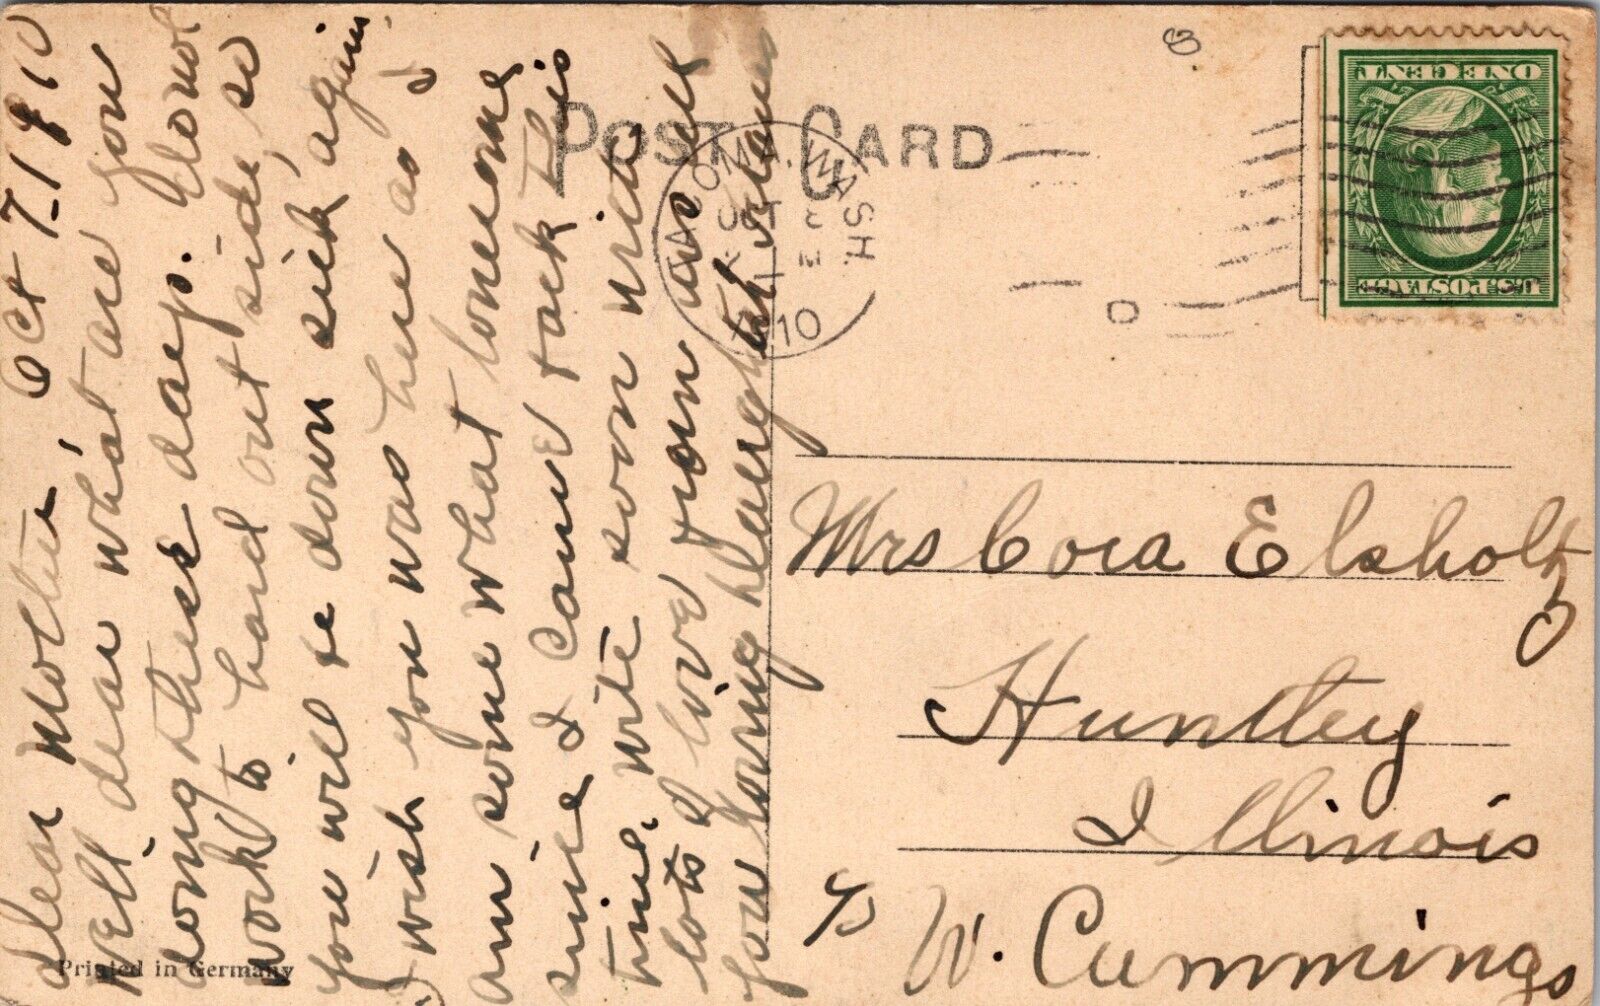 Oct 7-1910
Dear Mother
Well dear what are you
doing these days. Do not
work to hard out side, so
you will be down sick again
I wish you was here as I
am some what lonesome
since I came back this
time, write soon write
lots I love you as ever
your loving daughter
POST CARD
TACOMA, WASH.
OCT
1910
U.S. POSTAGE
ONE CENT
Mrs Cora Elsholtz
Huntley
Illinois
c/o W. Cummings
Printed in Germany